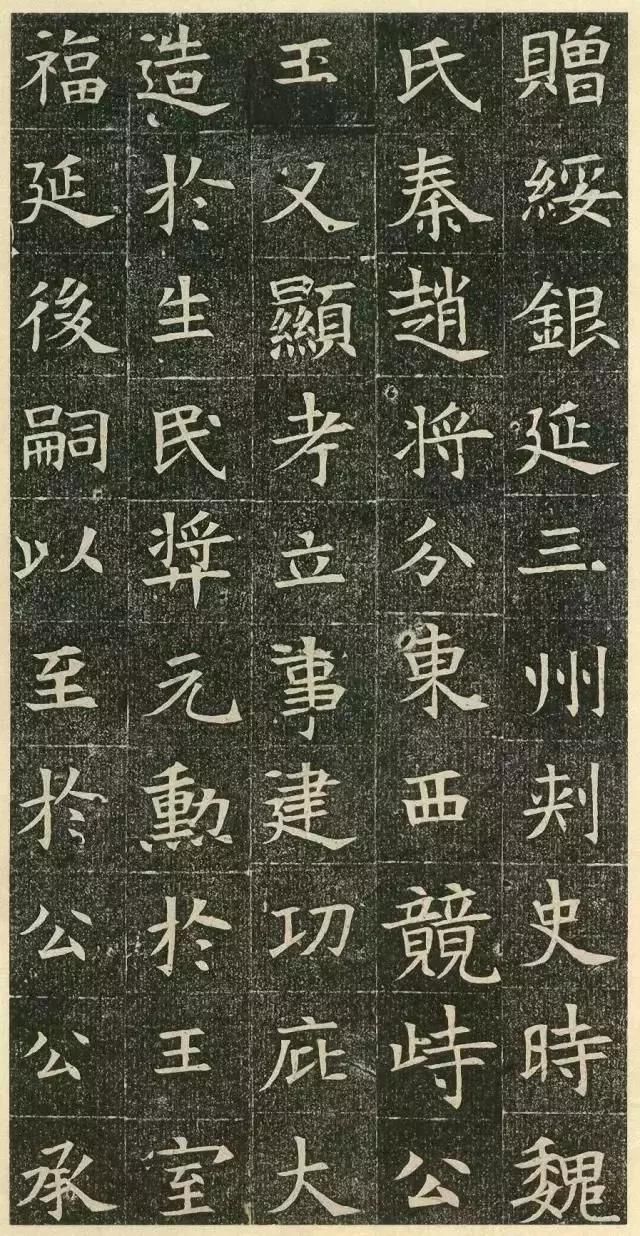 贈綏銀延三州刾史時魏
氏秦趙将分東西競峙公
王父顯考立事建功庇大
造於生民奨元勲於王室
福延後嗣以至於公公承